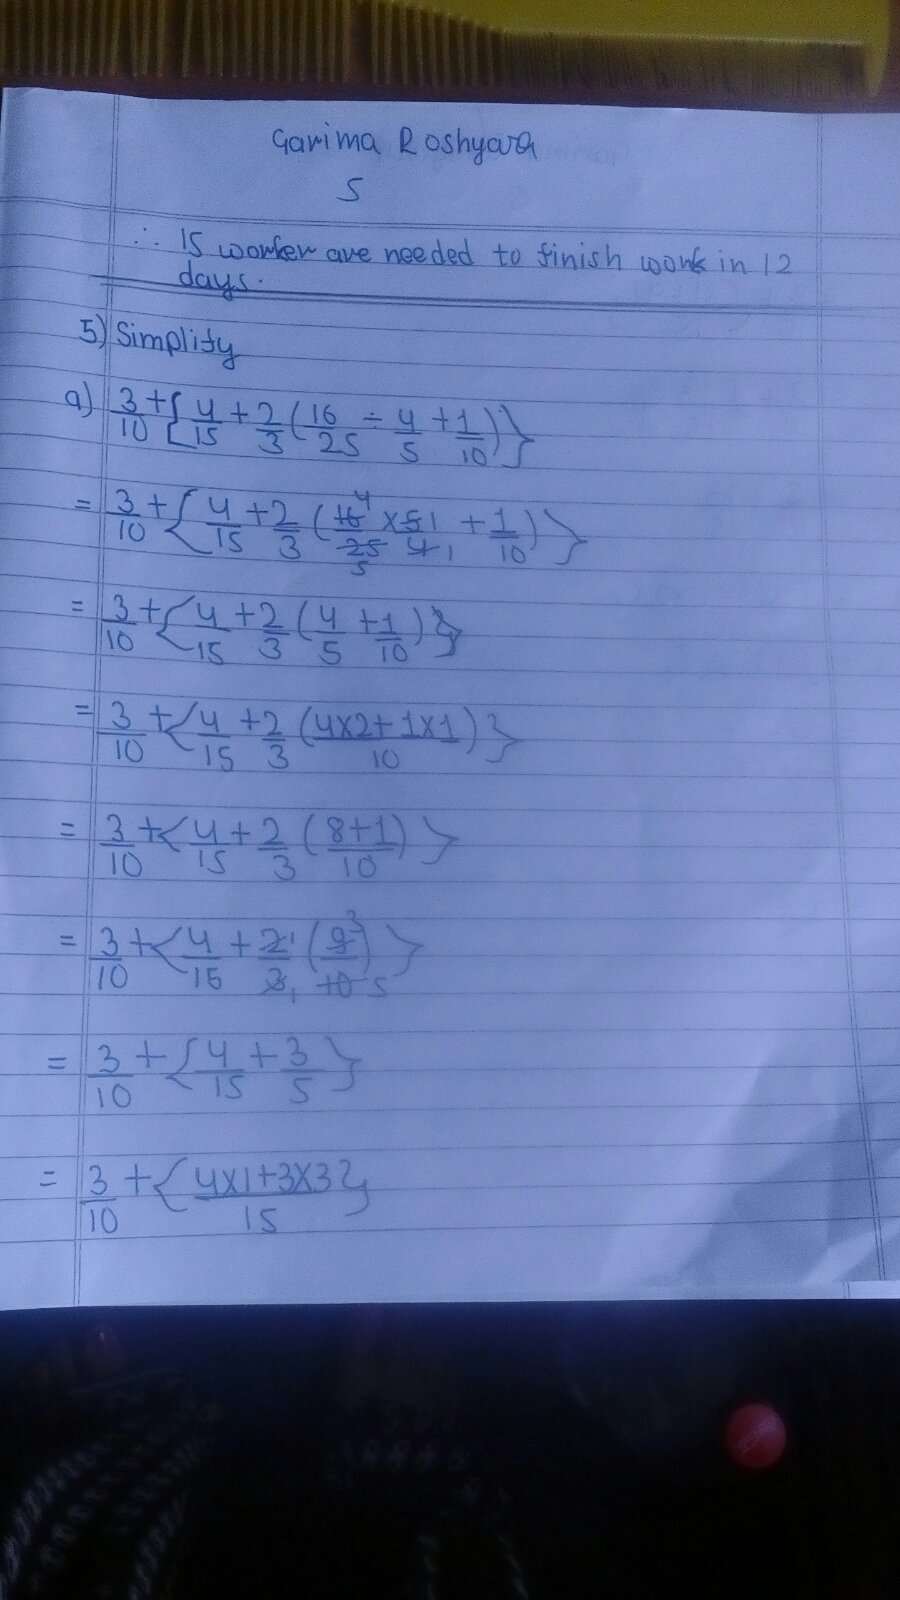 Garima Roshyara
5
∴ 15 worker are needed to finish work in 12
days.
5) Simplify
a) 3/10 + { 4/15 + 2/3 ( 16/25 ÷ 4/5 + 1/10 ) }
= 3/10 + { 4/15 + 2/3 ( 16 4/25 5 × 5 1/4 1 + 1/10 ) }
= 3/10 + { 4/15 + 2/3 ( 4/5 + 1/10 ) }
= 3/10 + { 4/15 + 2/3 ( 4×2+1×1/10 ) }
= 3/10 + { 4/15 + 2/3 ( 8+1/10 ) }
= 3/10 + { 4/15 + 2 1/3 1 ( 9 3/10 5 ) }
= 3/10 + { 4/15 + 3/5 }
= 3/10 + { 4×1+3×3/15 }